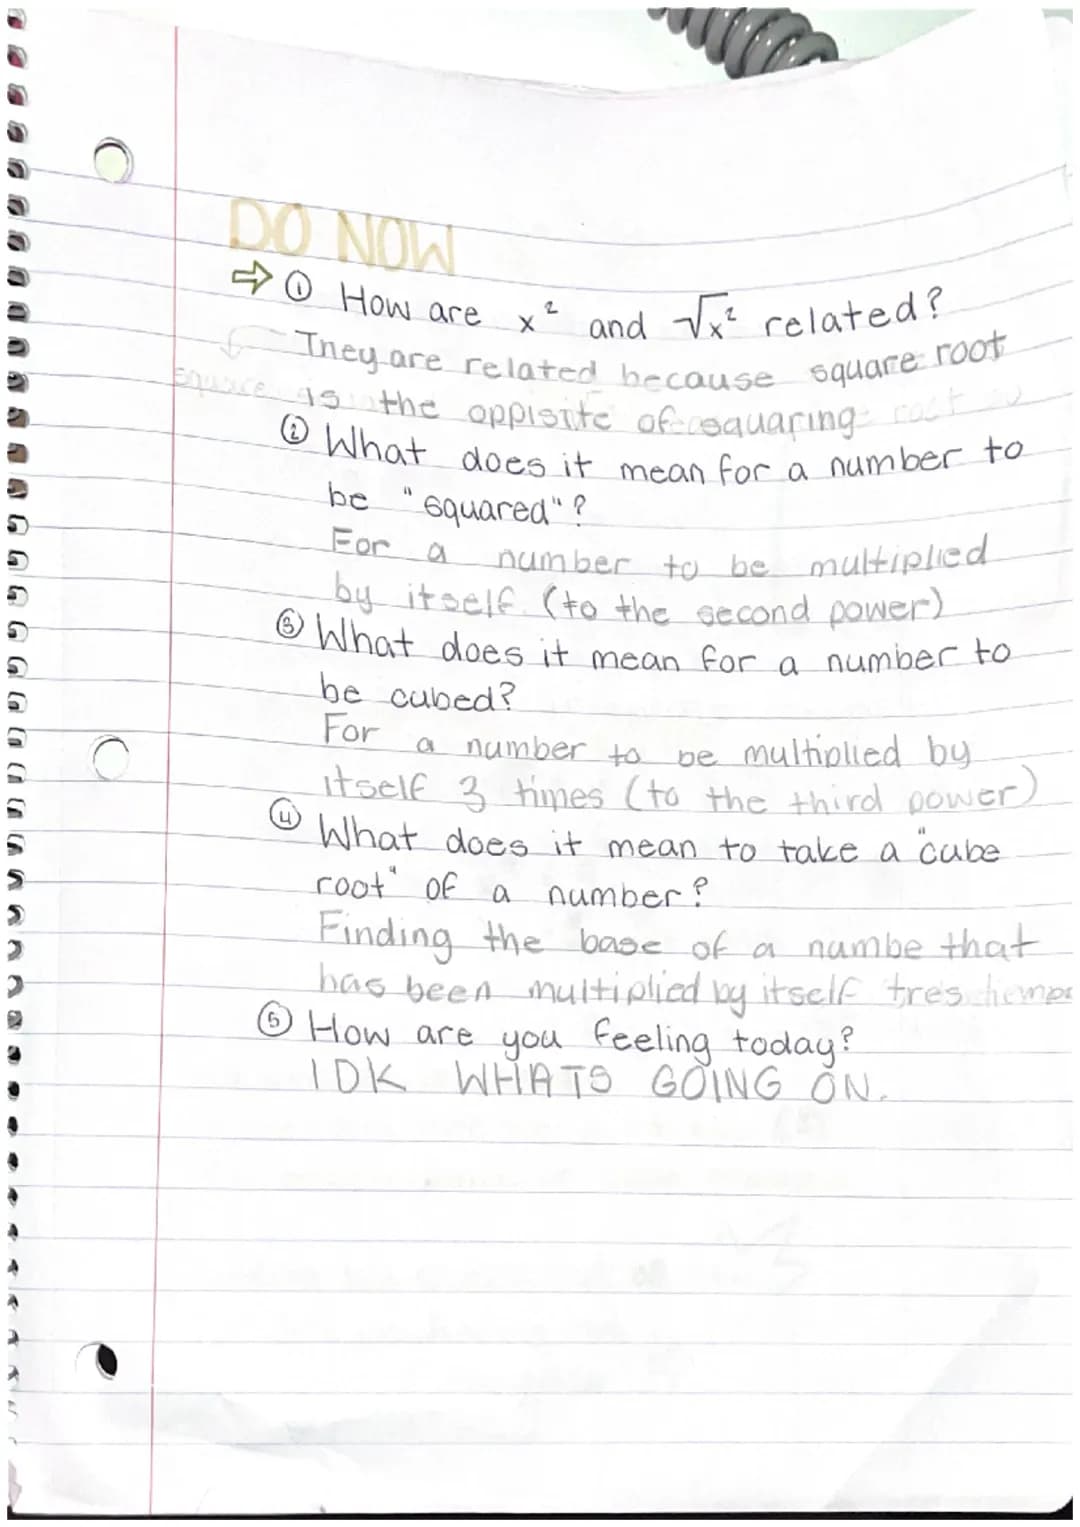 DO NOW
⇒ ① How are x² and √x² related?
They are related because square root
is the oppisite of squaring
② What does it mean for a number to
be "squared"?
For a number to be multiplied
by itself. (to the second power)
③ What does it mean for a number to
be cubed?
For a number to be multiplied by
itself 3 times (to the third power)
④ What does it mean to take a "cube
root" of a number?
Finding the base of a numbe that
has been multiplied by itself tres
⑤ How are you feeling today?
IDK WHATS GOING ON.